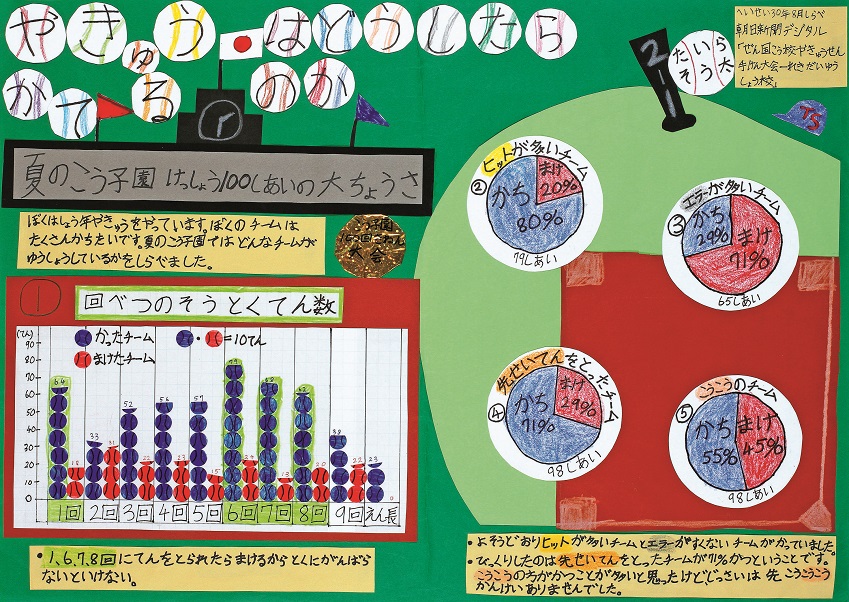 やきゅうはどうしたら
かてるのか
夏のこう子園 けっしょう100しあいの大ちょうさ
ぼくはしょう年やきゅうをやっています。ぼくのチームは
たくさんかちたいです。夏のこう子園ではどんなチームが
ゆうしょうしているかをしらべました。
大会
① 回べつのそうとくてん数
(てん)
かったチーム
まけたチーム
・ =10てん
90
80
70
60
50
40
30
20
10
0
64 18 33 31 52 22 56 23 57 15 79 24 69 13 62 20 38 22 23 0
1回 2回 3回 4回 5回 6回 7回 8回 9回 えん長
・1、6、7、8回にてんをとられたらまけるからとくにがんばら
ないといけない。
2-1
たいら
そう太
へいせい30年8月しらべ
朝日新聞デジタル
「ぜん国こう校やきゅうせん
手けん大会-れきだいゆう
しょう校」
TS
② ヒットが多いチーム
かち 80%
まけ 20%
79しあい
③ エラーが多いチーム
かち 29%
まけ 71%
65しあい
④ 先せいてんをとったチーム
かち 71%
まけ 29%
98しあい
⑤ こうこうのチーム
かち 55%
まけ 45%
98しあい
・よそうどおりヒットが多いチームとエラーがすくないチームがかっていました。
・びっくりしたのは先せいてんをとったチームが71%かつということです。
こうこうの方がかつことが多いと思ったけどじっさいは先こうこうこう
かんけいありませんでした。